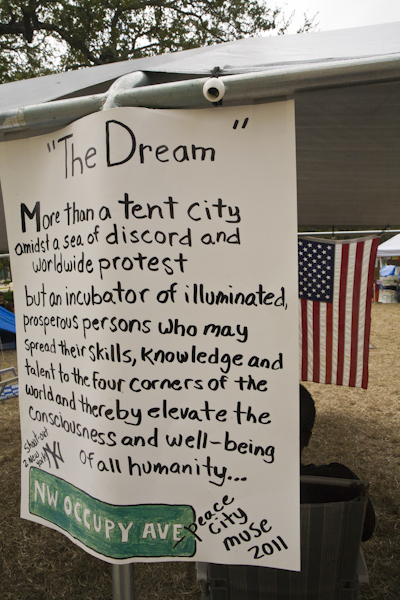 "The Dream"
More than a tent city
amidst a sea of discord and
worldwide protest
but an incubator of illuminated,
prosperous persons who may
spread their skills, knowledge and
talent to the four corners of the
world and thereby elevate the
consciousness and well-being
of all humanity...
Shout-out
2 New
York
NW OCCUPY AVE
peace
city
muse
2011